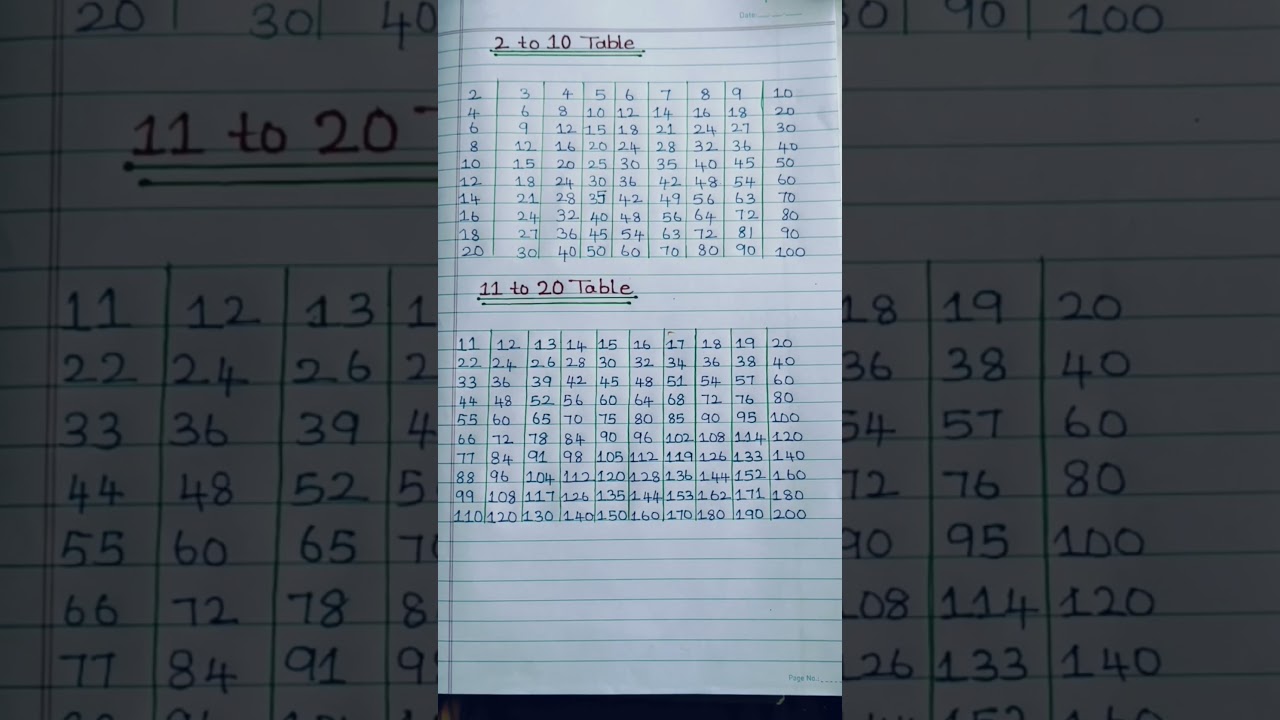 Date:
2 to 10 Table
2 3 4 5 6 7 8 9 10
4 6 8 10 12 14 16 18 20
6 9 12 15 18 21 24 27 30
8 12 16 20 24 28 32 36 40
10 15 20 25 30 35 40 45 50
12 18 24 30 36 42 48 54 60
14 21 28 35 42 49 56 63 70
16 24 32 40 48 56 64 72 80
18 27 36 45 54 63 72 81 90
20 30 40 50 60 70 80 90 100
11 to 20 Table
11 12 13 14 15 16 17 18 19 20
22 24 26 28 30 32 34 36 38 40
33 36 39 42 45 48 51 54 57 60
44 48 52 56 60 64 68 72 76 80
55 60 65 70 75 80 85 90 95 100
66 72 78 84 90 96 102 108 114 120
77 84 91 98 105 112 119 126 133 140
88 96 104 112 120 128 136 144 152 160
99 108 117 126 135 144 153 162 171 180
110 120 130 140 150 160 170 180 190 200
Page No.: